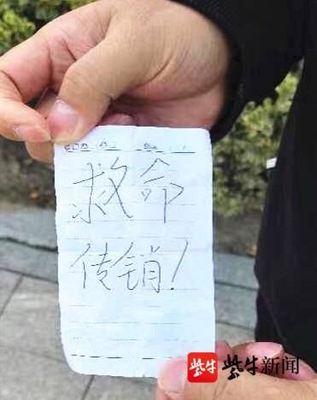 救命
传销!
紫牛 紫牛新闻